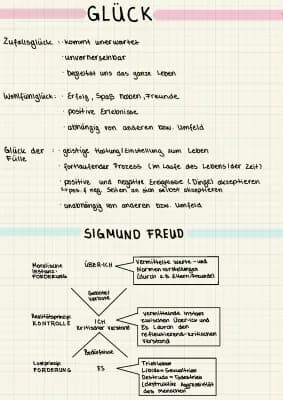 GLÜCK
Zufallsglück : · kommt unerwartet
· unvorhersehbar
· begleitet uns das ganze Leben
Wohlfühlglück : · Erfolg, Spaß haben, Freunde
· positive Erlebnisse
· abhängig von anderen bzw. Umfeld
Glück der : · geistige Haltung/Einstellung zum Leben
Fülle
· fortlaufender Prozess (im Laufe des Lebens/der Zeit)
· positive und negative Ereignisse (Dinge) akzeptieren
pos. & neg. Seiten an sich selbst akzeptieren
· unabhängig von anderen bzw. Umfeld
SIGMUND FREUD
Moralische
Instanz:
FORDERUNG
ÜBER-ICH
Vermittelte Werte- und
Normvorstellungen
(durch z.B. Eltern/Freunde)
Gebote/
Verbote
Realitätsprinzip
KONTROLLE
ICH
kritischer Verstand
vermittelnde Instanz
zwischen Über-Ich und
Es (durch den
reflektierend-kritischen
Verstand)
Bedürfnisse
Lustprinzip
FORDERUNG
ES
Triebleben
Libido = Sexualtrieb
Destrudo = Todestrieb
(destruktive Aggressivität
des Menschen)